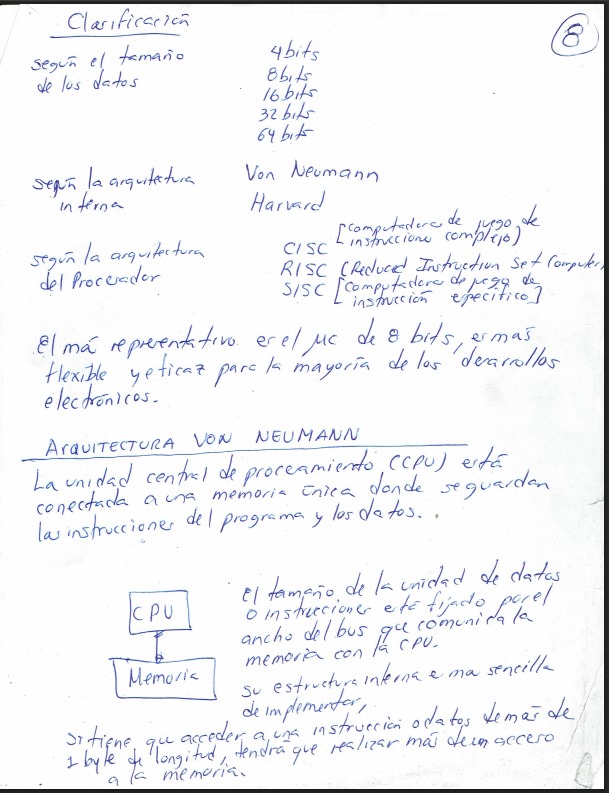 Clasificación
8
según el tamaño
de los datos
4 bits
8 bits
16 bits
32 bits
64 bits
según la arquitectura
interna
Von Neumann
Harvard
según la arquitectura
del Procesador
CISC [computadora de juego de
instrucciones complejo)
RISC (Reduced Instruction Set Computer,
SISC [computadora de juego de
instrucción específico]
El más representativo es el µc de 8 bits, es mas
flexible y eficaz para la mayoría de los desarrollos
electrónicos.
ARQUITECTURA VON NEUMANN
La unidad central de procesamiento (CPU) está
conectada a una memoria única donde se guardan
las instrucciones del programa y los datos. .
CPU
Memoria
el tamaño de la unidad de datos
o instrucciones está fijado por el
ancho del bus que comunica la
memoria con la CPU.
su estructura interna e ma sencilla
de implementar,
si tiene que acceder a una instrucción o datos de más de
1 byte de longitud, tendrá que realizar más de un acceso
a la memoria.